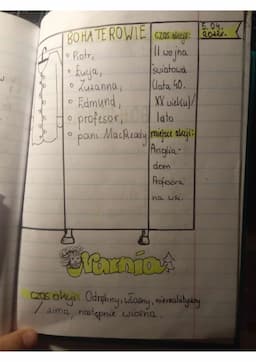 BOHATEROWIE
• Piotr,
• Łucja,
• Zuzanna,
• Edmund,
• profesor,
• pani MacReady
czas akcji:
II wojna
światowa
(lata 40.
XX wieku)/
lato
miejsce akcji:
Anglia-
dom
Profesora
na wsi.
Narnia
czas akcji: Odrębny, własny, nierealistyczny
/zima, następnie wiosna.